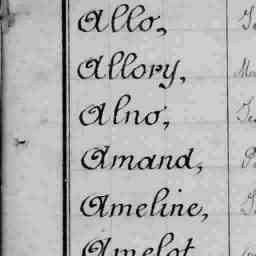 Allo,
Allory,
Alno,
Amand,
Ameline,
Amelot